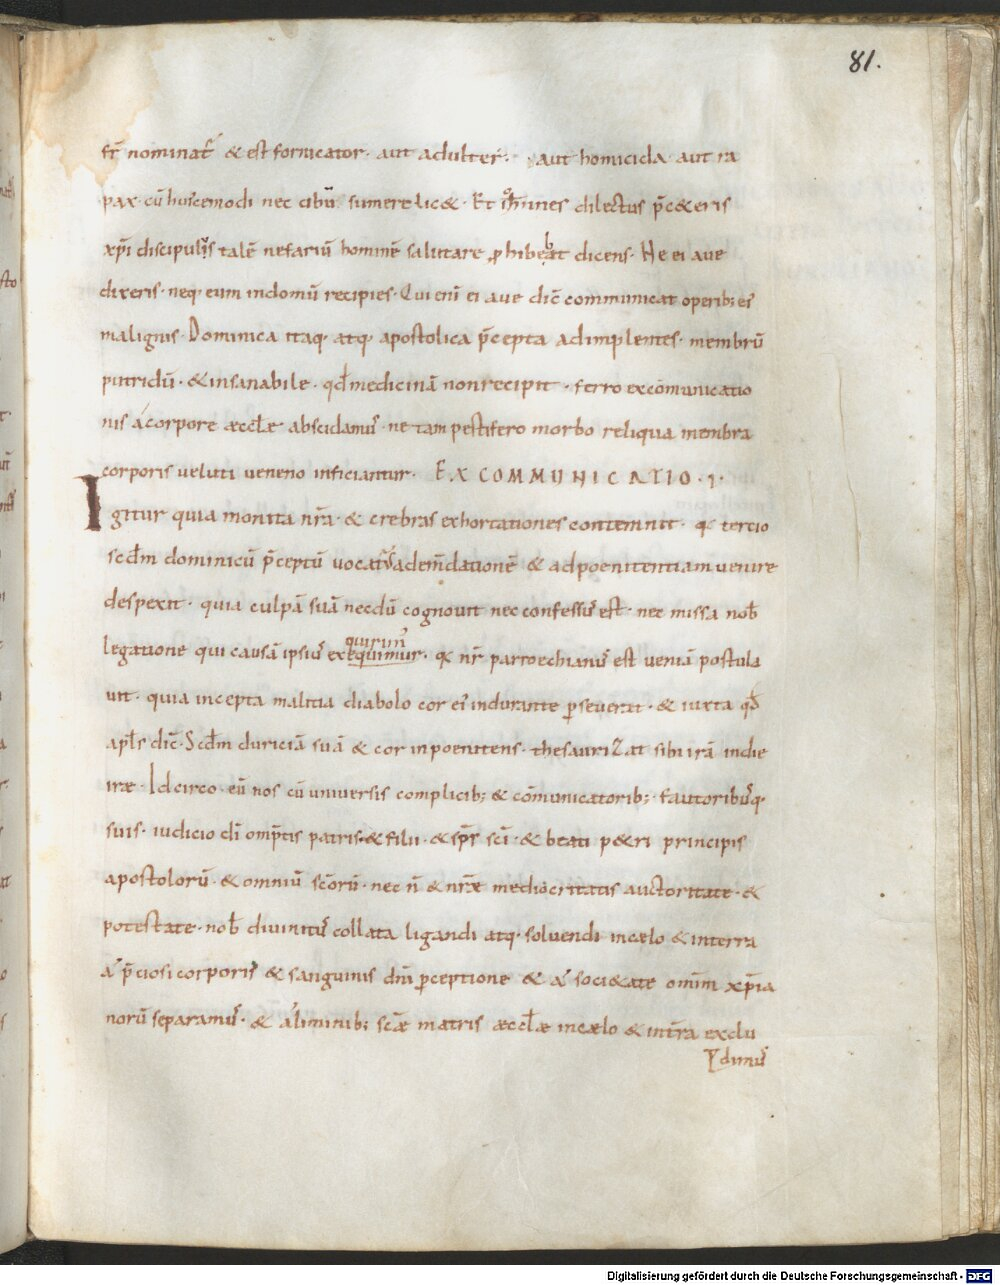 81.
fr̄ nominat᷑ & est fornicator· aut adulter᷑· aut homicida· aut ra
pax· cū huiscemodi nec cibū sumere lic&· Et iohannes dilectus p̄c&eris
xp̄i discipulis talē nefariū hominē salutare ꝓhibebat dicens· Ne ei aue
dixeris· neq· eum in domū recipies· Qui eni ei aue dic̄ communicat operib; ei᷒
malignis· Dominica itaq· atq· apostolica p̄cepta adimplentes· membrū
putridū· & insanabile· qd̄ medicinā non recipit· ferro excōmunicatio
nis á corpore æccl̄æ abscidamus᷒ ne tam pestifero morbo reliqua membra
corporis veluti veneno inficiantur· EXCOMMUNICATIO·I·
Igitur quia monita nr̄a· & crebras exhortationes contemnit· q· tercio
scd̄m dominicū p̄ceptū uocat᷒ ad em̄dationē & ad poenitentiam uenire
despexit· quia culpā suā necdū cognouit nec confessus᷒ est· nec missa nob̄
quirim᷒
legatione qui causā ipsius᷒ exequimur· q· nr̄ parroechianus᷒ est ueniā postula
uit· quia incepta malitia diabolo cor ei᷒ indurante ꝑseuerat· & iuxta qd̄
apl̄s dic̄· Scd̄m duriciā suā & cor inpoenitens· thesaurizat sibi irā in die
iræ· Idcirco eū nos cū uniuersis complicib; & cōmunicatorib; fautoribusq·
suis· iudicio dī omp̄tis patris· & filii· & sp̄s sc̄i· & beati p&ri principis
apostolorū· & omniū sc̄orū· nec n̄ & nr̄æ mediocritatis auctoritate· &
potestate· nob̄ diuinitus᷒ collata ligandi atq· soluendi in cælo & in terra
a᾽ p̄ciosi corporis & sanguinis dn̄i ꝑceptione & a᾽ soci&ate omīm xp̄ia
norū separamus᷒· & a᾽ liminib; sc̄æ matris æccl̄æ in cælo & in tr̄a exclu
dimus᷒
Digitalisierung gefördert durch die Deutsche Forschungsgemeinschaft - DFG